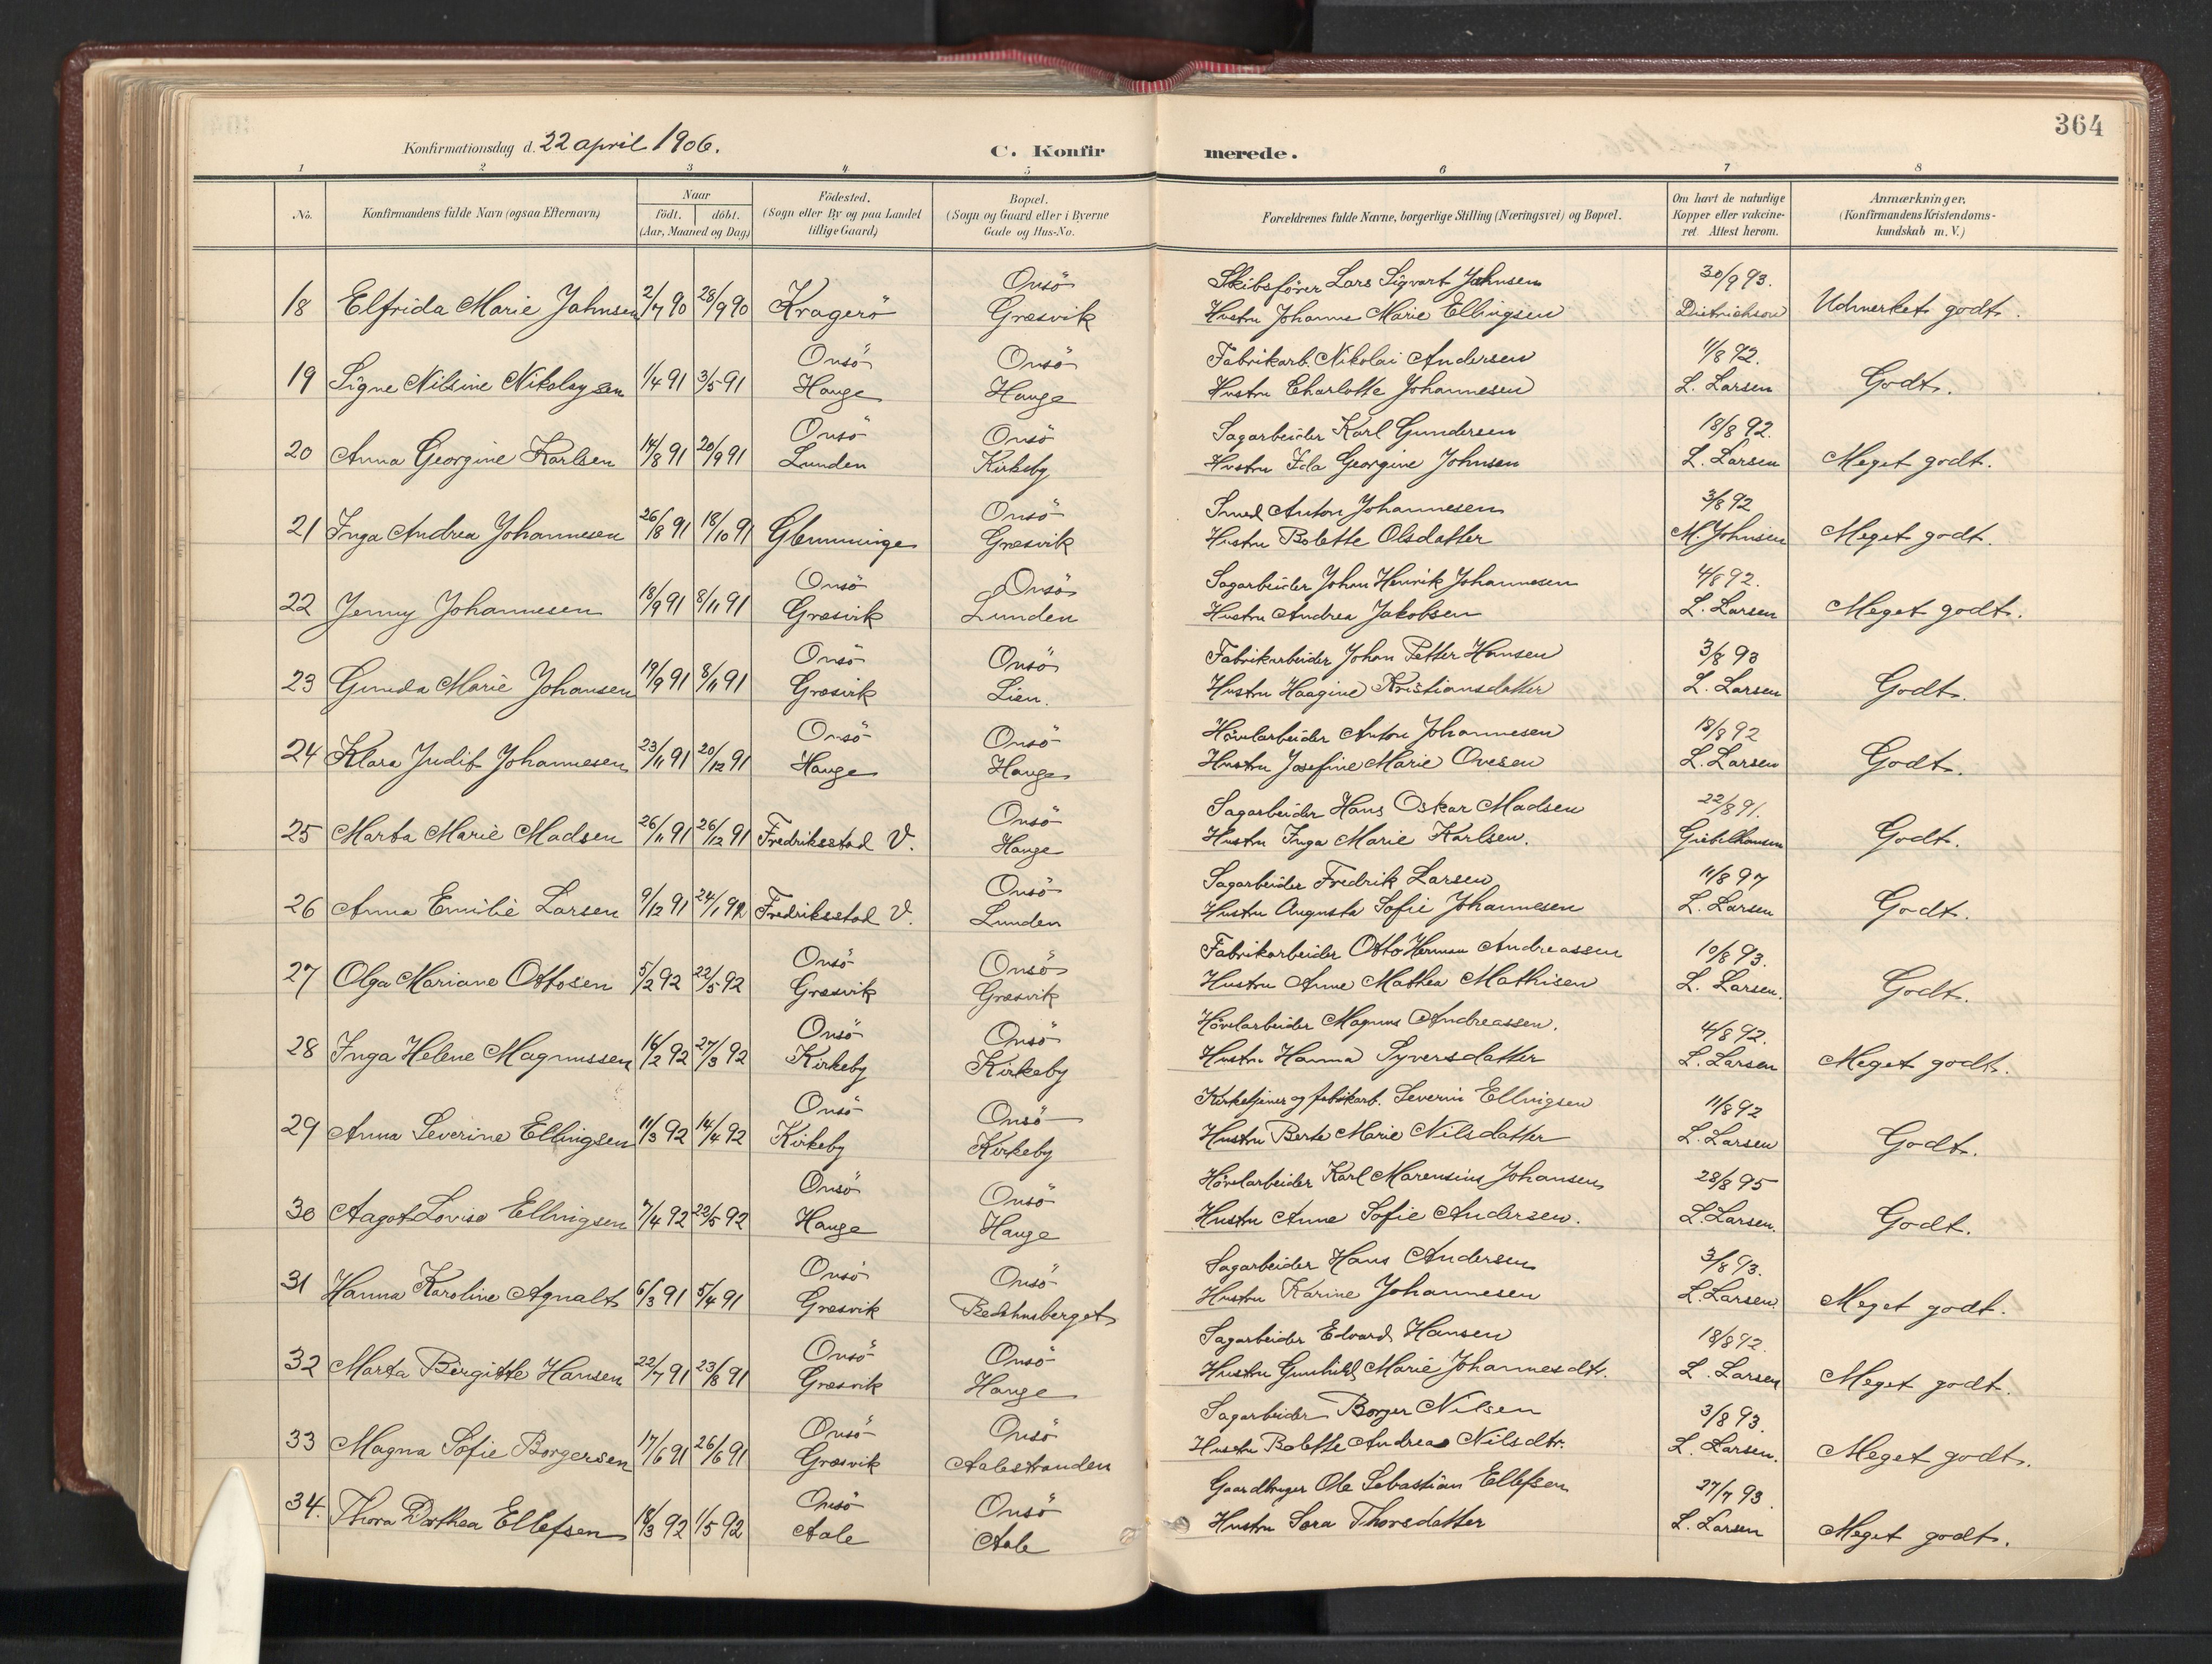 364
Konfirmationsdag d. 22 april 1906.
C. Konfirmerede.
1 2 3 4 5 6 7 8
No.
Konfirmandens fulde Navn (ogsaa Efternavn)
Naar
födt. döbt.
(Aar, Maaned og Dag)
Födested.
(Sogn eller By og paa Landet
tillige Gaard)
Bopæl.
(Sogn og Gaard eller i Byerne
Gade og Hus-No.
Forældrenes fulde Navne, borgerlige Stilling (Næringsvei) og Bopæl.
Om havt de naturlige
Kopper eller vakcine-
ret. Attest herom.
Anmærkninger,
(Konfirmandens Kristendoms-
kundskab m. V.)
Onsö Skibsförer Lars Sigvart Jahnsen 30/9 93.
18 Elfrida Marie Jahnsen 2/7 90 28/9 90 Kragerö Græsvik Hustru Johanne Marie Ellingsen Dietrichson Udmerket godt.
Onsö Onsö Fabrikarb. Nikolai Andersen 11/8 92.
19 Signe Nilsine Nikolaysen 1/4 91 3/5 91 Hauge Hauge Hustru Charlotte Johannesen L. Larsen Godt.
Onsö Onsö Sagarbeider Karl Gundersen 18/8 92.
20 Anna Georgine Karlsen 14/8 91 20/9 91 Lunden Kirkeby Hustru Ida Georgine Johnsen L. Larsen Meget godt.
Onsö Smed Anton Johannesen 3/8 92
21 Inga Andrea Johannesen 26/8 91 18/10 91 Glemminge Græsvik Hustru Bolette Olsdatter M. Johnsen Meget godt.
Onsö Onsö Sagarbeider Johan Henrik Johannesen 4/8 92.
22 Jenny Johannesen 18/9 91 8/11 91 Græsvik Lunden Hustru Andrea Jakobsen L. Larsen Meget godt.
Onsö Onsö Fabrikarbeider Johan Petter Hansen 3/8 93
23 Gunda Marie Johansen 19/9 91 8/11 91 Græsvik Lien. Hustru Haagine Kristiansdatter L. Larsen Godt.
Onsö Onsö Hövelarbeider Anton Johannesen 18/8 92
24 Klara Judit Johannesen 23/11 91 20/12 91 Hauge Hauge Hustru Josefine Marie Ovesen L. Larsen Godt.
Onsö Sagarbeider Hans Oskar Madsen 22/8 91.
25 Marta Marie Madsen 26/11 91 26/12 91 Fredriksstad V. Hauge Hustru Inga Marie Karlsen. Giebelhausen Godt.
Onsö Sagarbeider Fredrik Larsen 11/8 97
26 Anna Emilie Larsen 9/12 91 24/1 92 Fredriksstad V. Lunden Hustru Augusta Sofie Johannesen L. Larsen Godt.
Onsö Onsö Fabrikarbeider Otto Herman Andreassen 10/8 93.
27 Olga Mariane Ottosen 5/2 92 22/5 92 Græsvik Græsvik Hustru Anne Mathea Mathisen L. Larsen. Godt.
Onsö Onsö Hövelarbeider Magnus Andreassen. 4/8 92.
28 Inga Helene Magnussen 16/2 92 27/3 92 Kirkeby Kirkeby Hustru Hanna Syversdatter L. Larsen Meget godt.
Onsö Onsö Kirketjener og fabrikarb. Severin Ellingsen 11/8 92
29 Anna Severine Ellingsen 11/3 92 14/4 92 Kirkeby Kirkeby Hustru Berte Marie Nilsdatter L. Larsen Godt.
Onsö Onsö Hövelarbeider Karl Marensius Johansen 28/8 95
30 Aagot Lovise Ellingsen 7/4 92 22/5 92 Hauge Hauge Hustru Anne Sofie Andersen. L. Larsen. Godt.
Onsö Onsö Sagarbeider Hans Andersen 3/8 93.
31 Hanna Karoline Agnalt 6/3 91 5/4 91 Græsvik Bedehusberget Hustru Karine Johannesen L. Larsen. Meget godt.
Onsö Onsö Sagarbeider Edvard Hansen 18/8 92.
32 Marta Birgitte Hansen 22/7 91 23/8 91 Græsvik Hauge Hustru Gunhild Marie Johannesdtr. L. Larsen Meget godt.
Onsö Onsö Sagarbeider Borger Nilsen 3/8 93.
33 Magna Sofie Borgersen 17/6 91 26/6 91 Græsvik Aalestranden Hustru Bolette Andrea Nilsdtr. L. Larsen. Meget godt.
Onsö Onsö Gaardbruger Ole Sebastian Ellefsen 27/7 93.
34. Thora Dorthea Ellefsen 18/3 92 1/5 92 Aale Aale Hustru Sora Thorsdatter L. Larsen Meget godt.